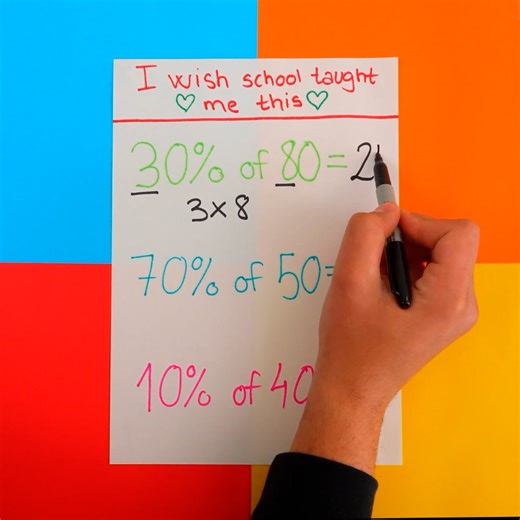 I wish school taught
♡ me this ♡
30% of 80 = 2
3×8
70% of 50=
10% of 40